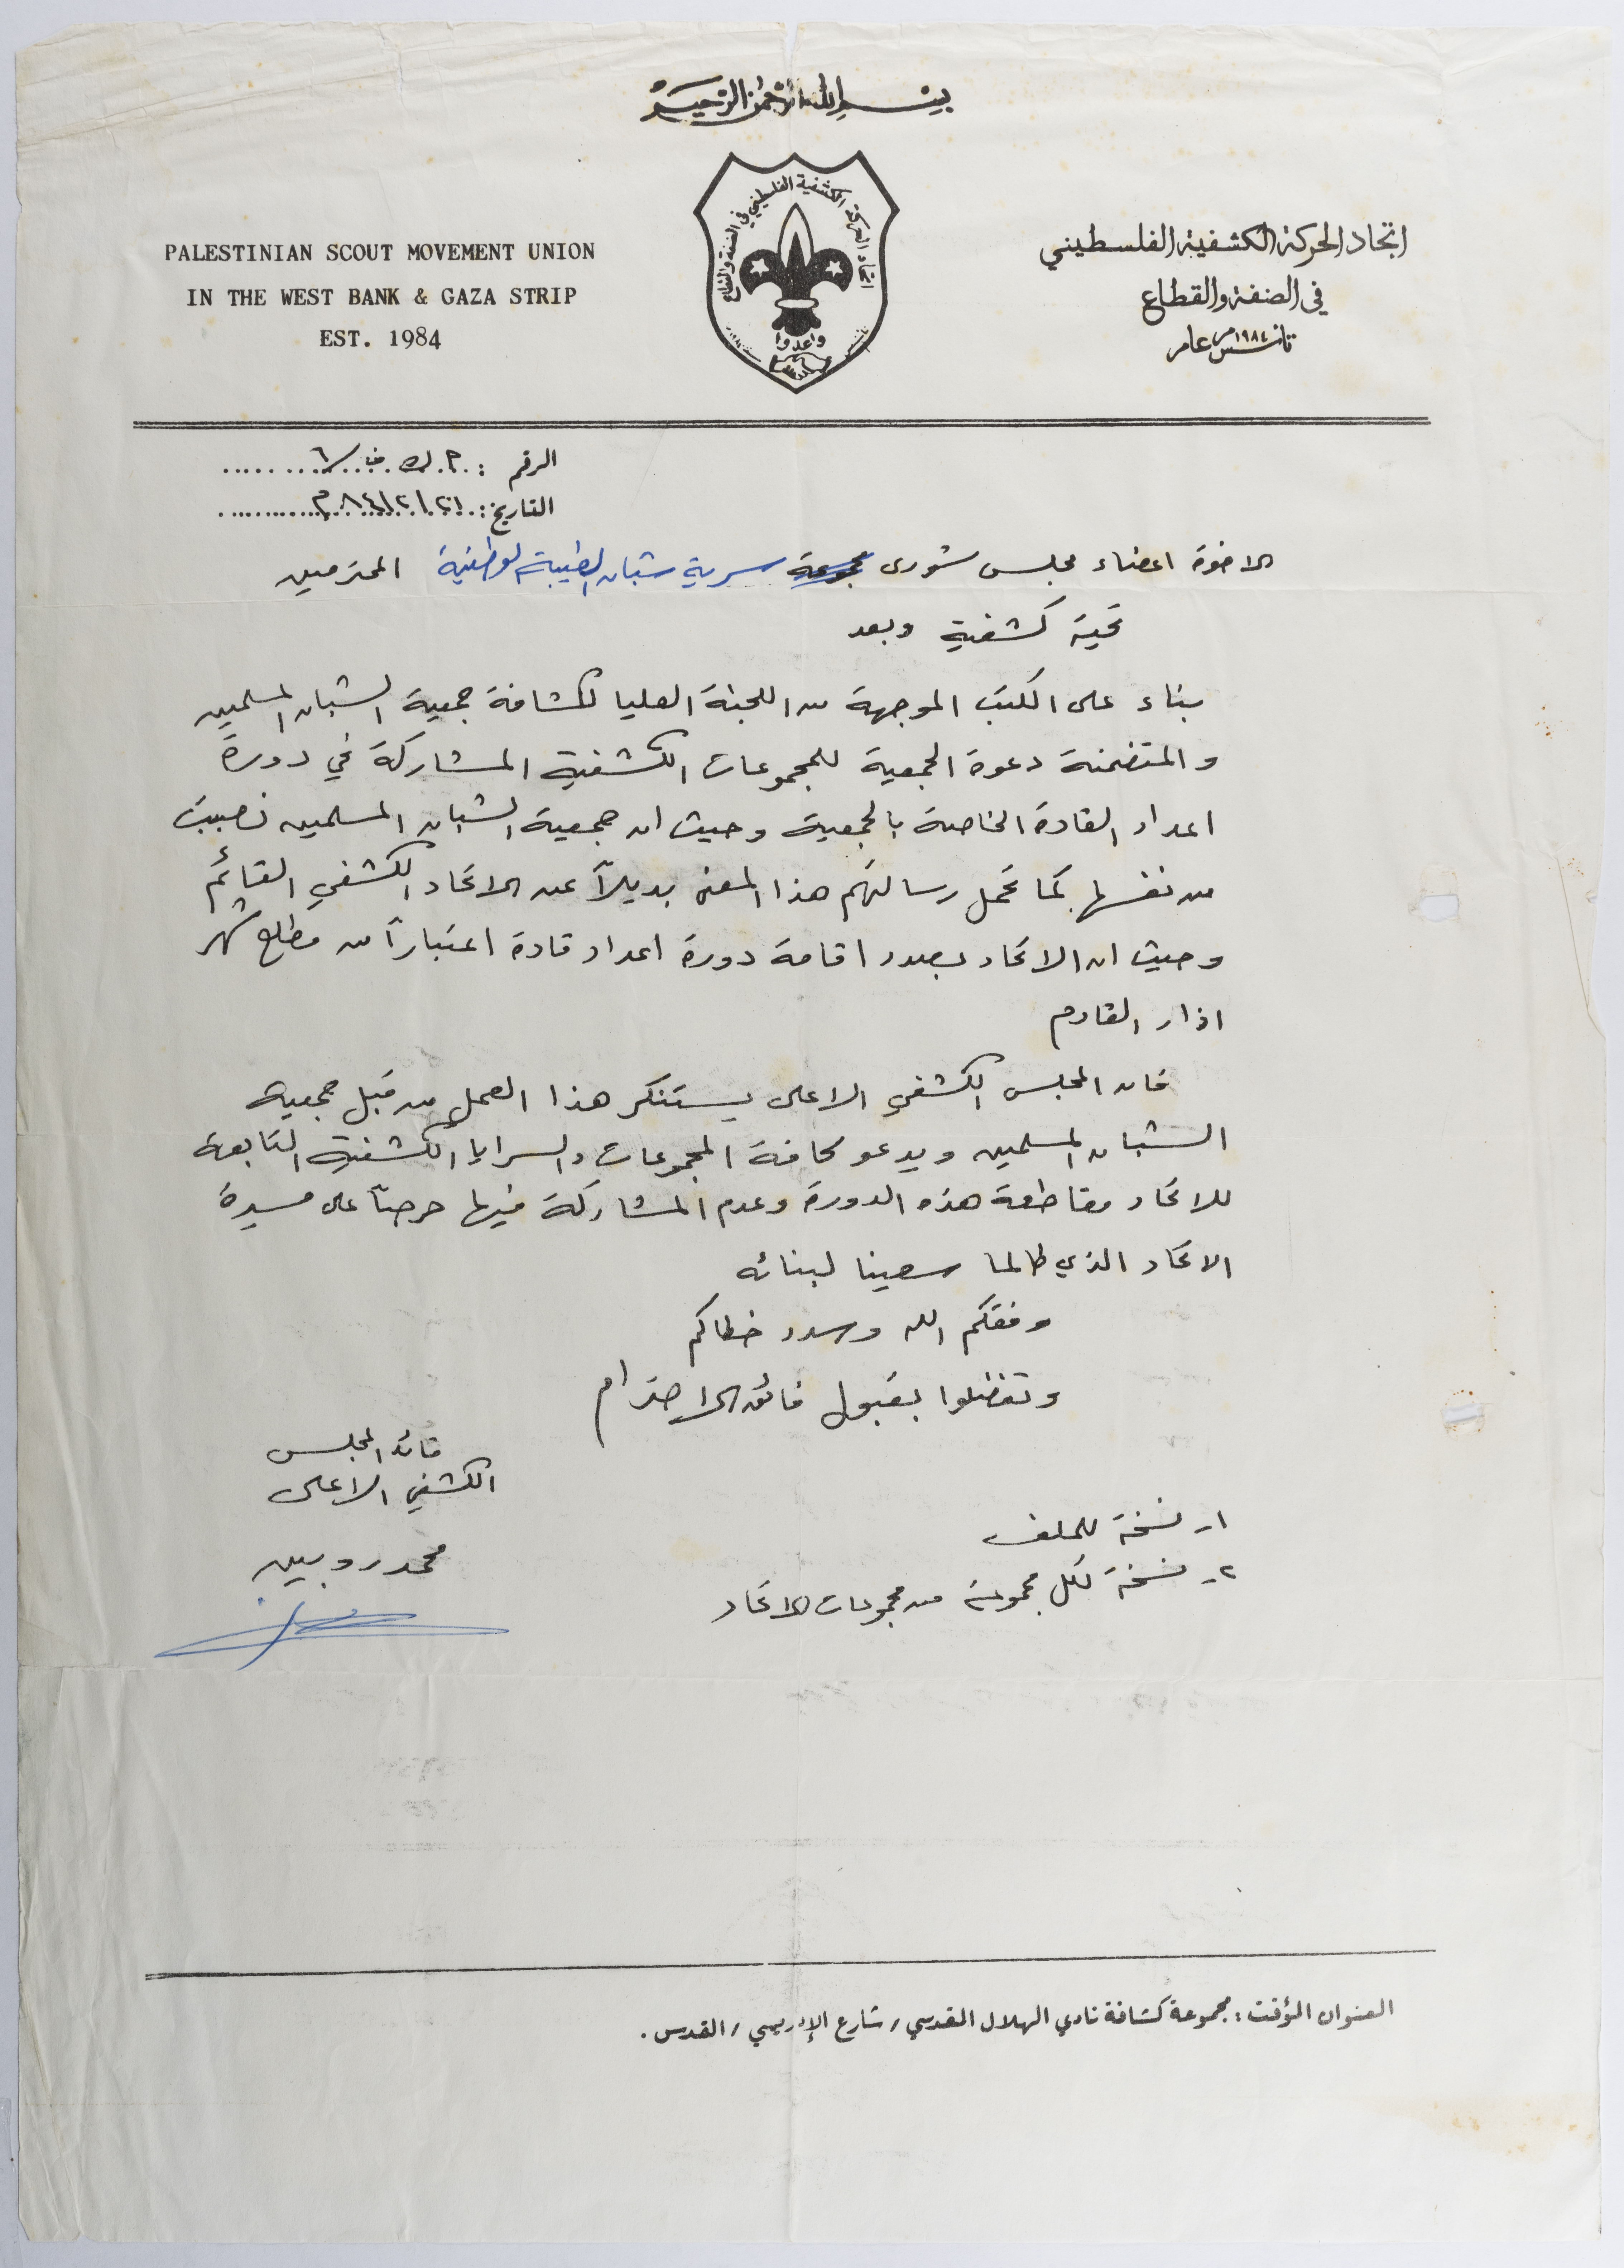 بسم الله الرحمن الرحيم
PALESTINIAN SCOUT MOVEMENT UNION
IN THE WEST BANK & GAZA STRIP
EST. 1984
اتحاد الحركة الكشفية الفلسطيني في الضفة والقطاع
واعدوا
اتحاد الحركة الكشفية الفلسطيني
في الضفة والقطاع
تأسس عام ١٩٨٤م
الرقم : م. ك. ف/٦
التاريخ: ٢١/٢/٨٤م
الاخوة اعضاء مجلس شورى مجموعة سرية شبان الطيبة الوطنية المحترمين
تحية كشفية وبعد
بناء على الكتب الموجهة من اللجنة العليا لكشافة جمعية الشبان المسلمين
والمتضمنة دعوة الجمعية للمجموعات الكشفية المشاركة في دورة
اعداد القادة الخاصة بالجمعية وحيث ان جمعية الشبان المسلمين نصبت
من نفسها كما تحمل رسالتهم هذا المعنى بديلاً عن الاتحاد الكشفي القائم
وحيث ان الاتحاد بصدد اقامة دورة اعداد قادة اعتباراً من مطلع شهر
اذار القادم
فان المجلس الكشفي الاعلى يستنكر هذا العمل من قبل جمعية
الشبان المسلمين ويدعو كافة المجموعات والسرايا الكشفية التابعة
للاتحاد مقاطعة هذه الدورة وعدم المشاركة فيها حرصاً على مسيرة
الاتحاد الذي طالما سعينا لبنائه
وفقكم الله وسدد خطاكم
وتفضلوا بقبول فائق الاحترام
قائد المجلس
الكشفي الاعلى
محمد روبين
١- نسخة للملف
٢- نسخة لكل مجموعة من مجموعات الاتحاد
العنوان المؤقت : مجموعة كشافة نادي الهلال المقدسي / شارع الإدريسي / القدس .